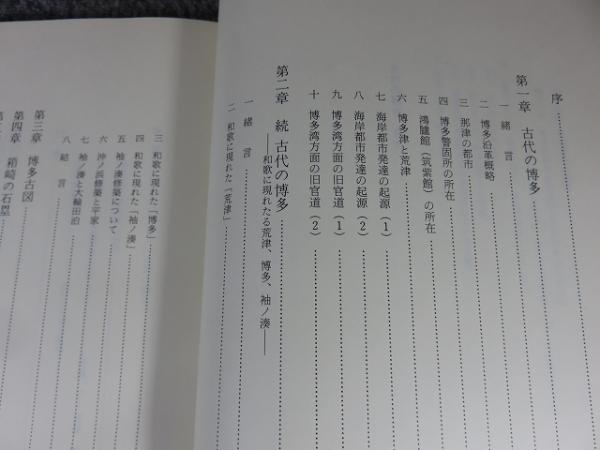 序
第一章 古代の博多
一 緒言
二 博多沿革概略
三 那津の都市
四 博多警固所の所在
五 鴻臚館(筑紫館)の所在
六 博多津と荒津
七 海岸都市発達の起源(1)
八 海岸都市発達の起源(2)
九 博多湾方面の旧官道(1)
十 博多湾方面の旧官道(2)
第二章 続 古代の博多
――和歌に現れたる荒津、博多、袖ノ湊――
一 緒言
二 和歌に現れた「荒津」
三 和歌に現れた「博多」
四 和歌に現れた「袖ノ湊」
五 袖ノ湊修築について
六 沖ノ浜修築と平家
七 袖ノ湊と大輪田泊
八 結言
第三章 博多古図
第四章 箱崎の石塁